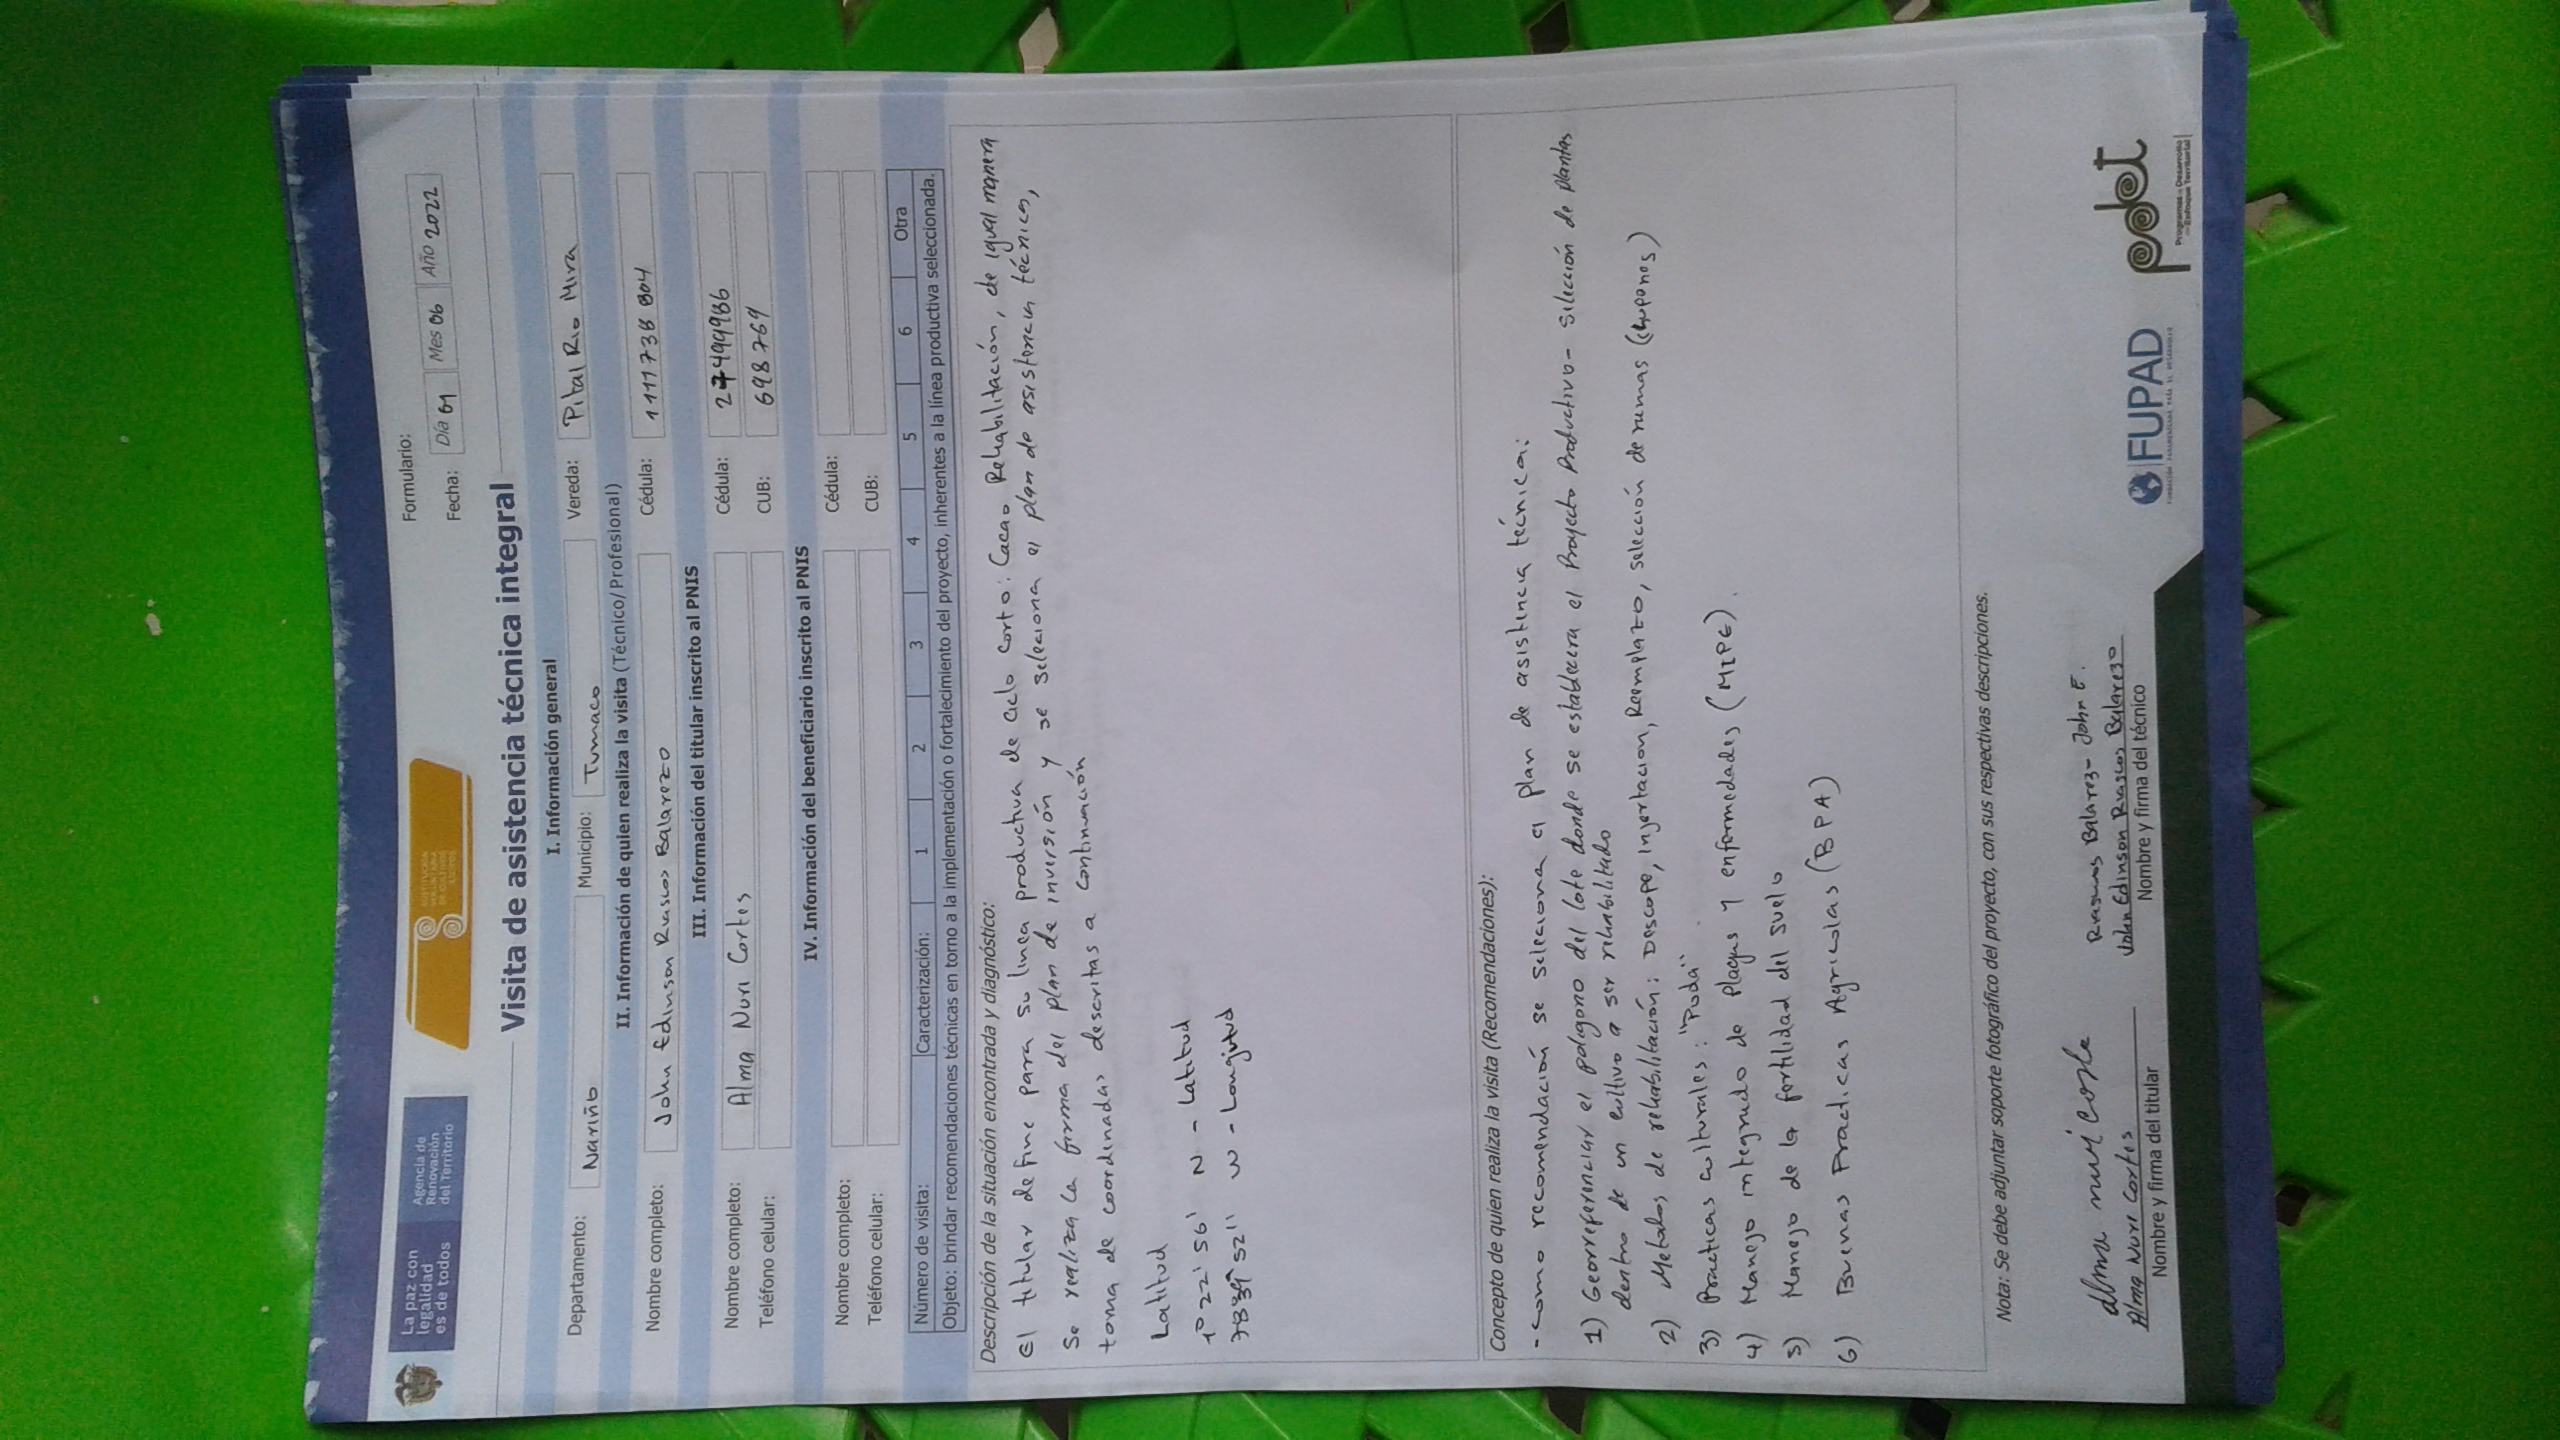 La paz con
legalidad
es de todos
Agencia de
Renovación
del Territorio
SUSTITUCIÓN
VOLUNTARIA
DE CULTIVOS
ILÍCITOS
Formulario:
Fecha: Día 01 Mes 06 Año 2022
Visita de asistencia técnica integral
I. Información general
Departamento: Nariño Municipio: Tumaco Vereda: Pital Rio Mira
II. Información de quien realiza la visita (Técnico/Profesional)
Nombre completo: John Edinson Riascos Balarezo Cédula: 1111738804
III. Información del titular inscrito al PNIS
Nombre completo: Alma Nuri Cortes Cédula: 27499986
Teléfono celular: CUB: 698769
IV. Información del beneficiario inscrito al PNIS
Nombre completo: Cédula:
Teléfono celular: CUB:
Número de visita: Caracterización: 1 2 3 4 5 6 Otra
Objeto: brindar recomendaciones técnicas en torno a la implementación o fortalecimiento del proyecto, inherentes a la línea productiva seleccionada.
Descripción de la situación encontrada y diagnóstico:
El titular define para su linea productiva de ciclo corto: Cacao Rehabilitación, de igual manera
Se realiza la firma del plan de inversión y se selecciona el plan de asistencia técnica,
toma de coordenadas descritas a continuación
Latitud
1°22'56' N - Latitud
78°39'52'' W - Longitud
Concepto de quien realiza la visita (Recomendaciones):
- como recomendación se selecciona el plan de asistencia técnica:
1) Georreferenciar el poligono del lote donde se establecera el Proyecto Productivo - selección de plantas
dentro de un cultivo a ser rehabilitado
2) Metodos de rehabilitación: Descope, Injertacion, Reemplazo, selección de ramas (chupones)
3) Practicas culturales: "Poda"
4) Manejo integrado de plagas y enfermedades (MIPE).
5) Manejo de la fertilidad del suelo
6) Buenas Practicas Agricolas (BPA)
Nota: Se debe adjuntar soporte fotográfico del proyecto, con sus respectivas descripciones.
alma nuri corte
Alma Nuri Cortes
Nombre y firma del titular
Riascos Balarezo John E.
John Edinson Riascos Balarezo
Nombre y firma del técnico
FUPAD
FUNDACIÓN PANAMERICANA PARA EL DESARROLLO
pdet
Programas de Desarrollo
con Enfoque Territorial